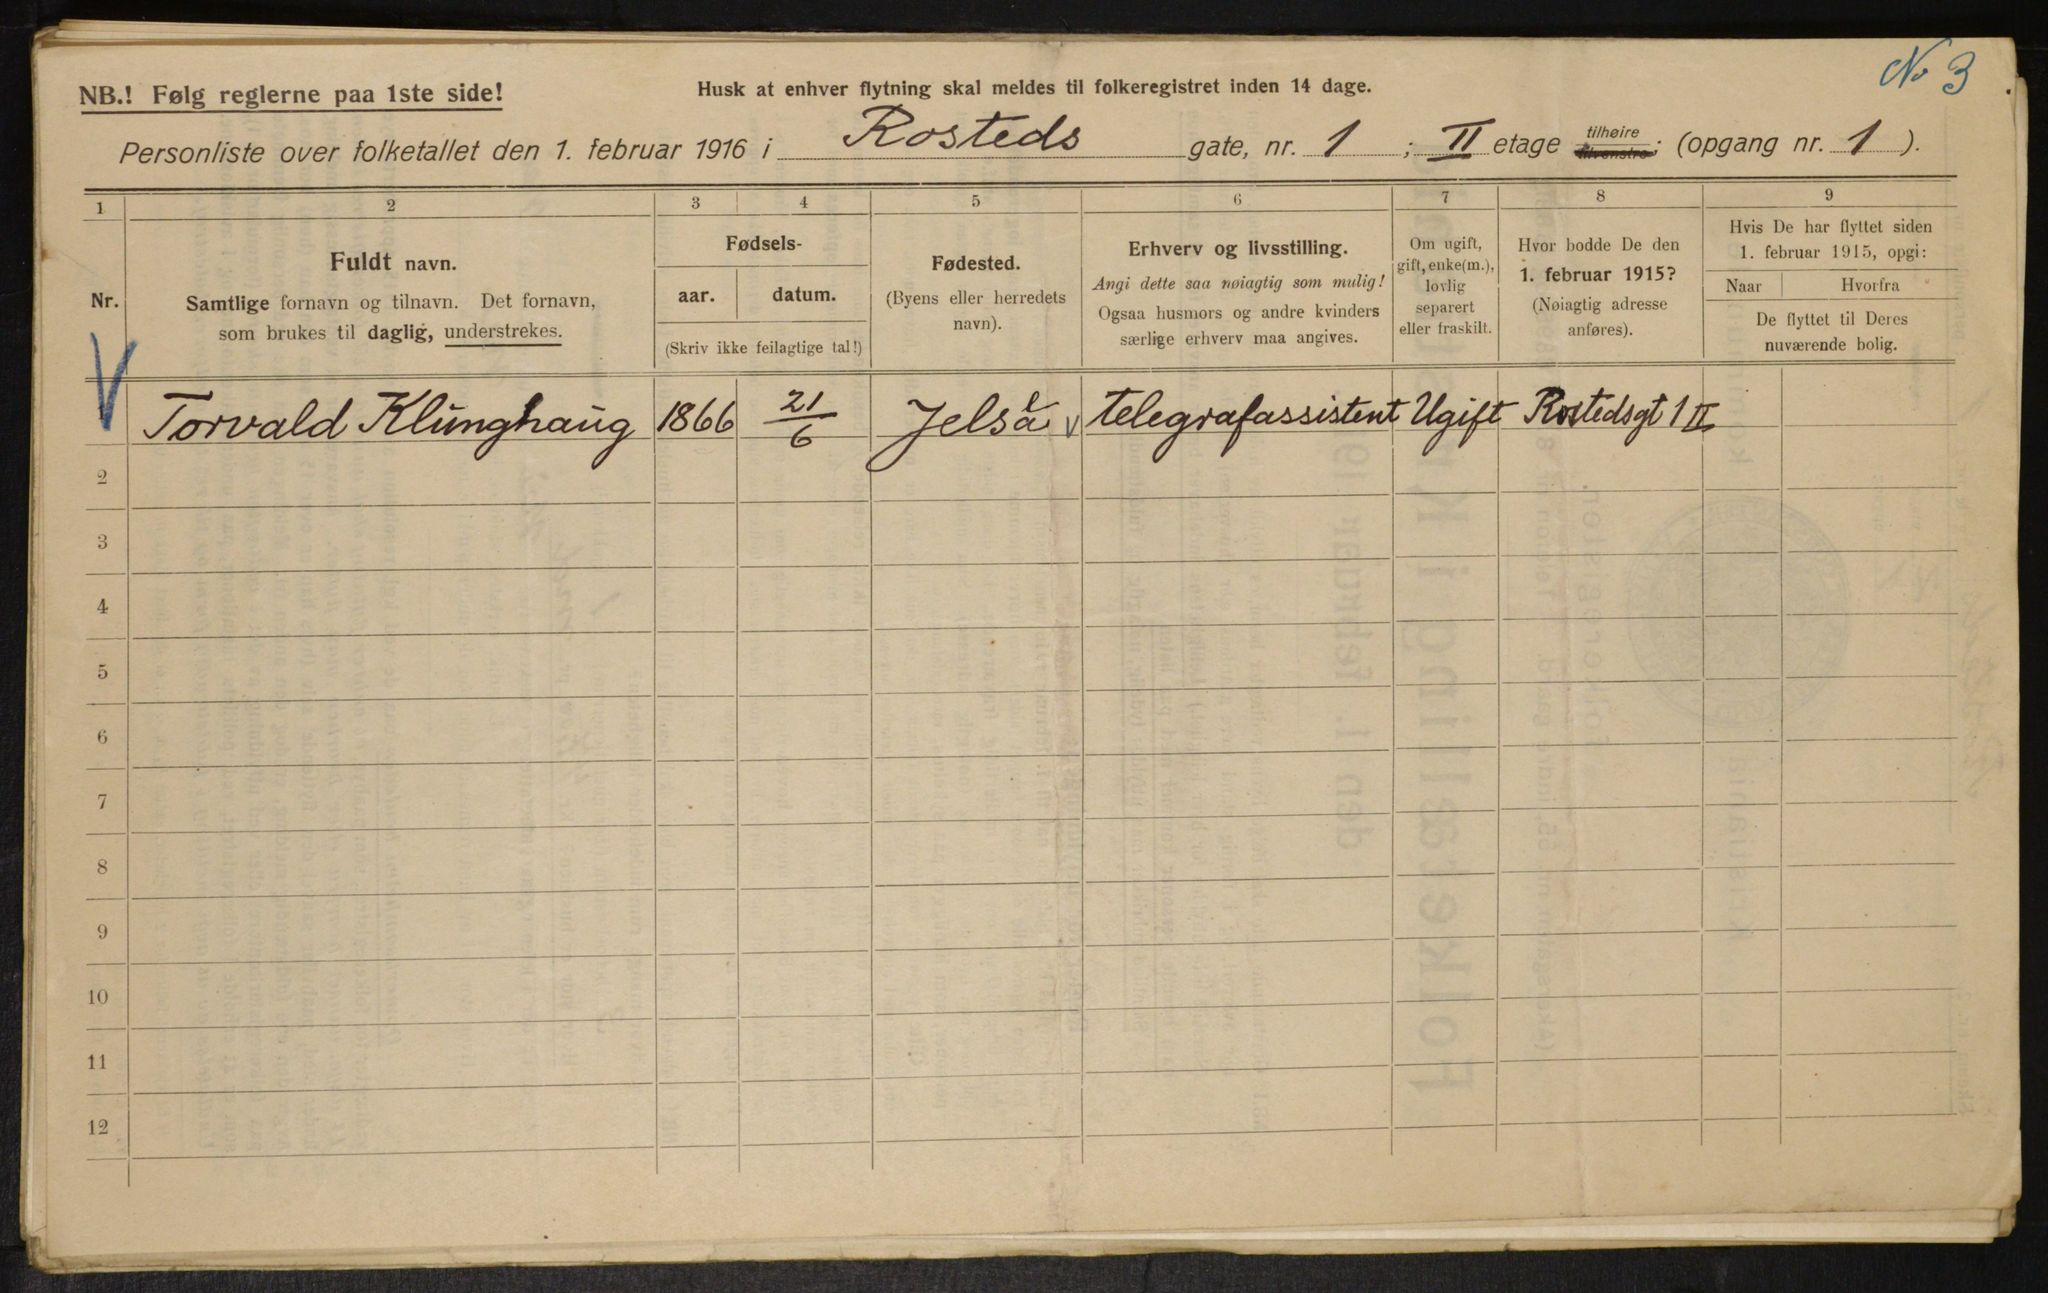 No 3
NB.! Følg reglerne paa 1ste side!
Husk at enhver flytning skal meldes til folkeregistret inden 14 dage.
Personliste over folketallet den 1. februar 1916 i Rosteds gate, nr. 1 ; II etage tilhøire tilvenstre ; (opgang nr. 1 ).
1 2 3 4 5 6 7 8 9
Nr.
Fuldt navn.
Samtlige fornavn og tilnavn. Det fornavn,
som brukes til daglig, understrekes.
Fødsels-
aar. datum.
(Skriv ikke feilagtige tal!)
Fødested.
(Byens eller herredets
navn).
Erhverv og livsstilling.
Angi dette saa nøiagtig som mulig!
Ogsaa husmors og andre kvinders
særlige erhverv maa angives.
Om ugift,
gift, enke(m.),
lovlig
separert
eller fraskilt.
Hvor bodde De den
1. februar 1915?
(Nøiagtig adresse
anføres).
Hvis De har flyttet siden
1. februar 1915, opgi:
Naar Hvorfra
De flyttet til Deres
nuværende bolig.
1 Torvald Klunghaug 1866 21/6 Jelsa telegrafassistent Ugift Rostedsgt 1 II
2
3
4
5
6
7
8
9
10
11
12